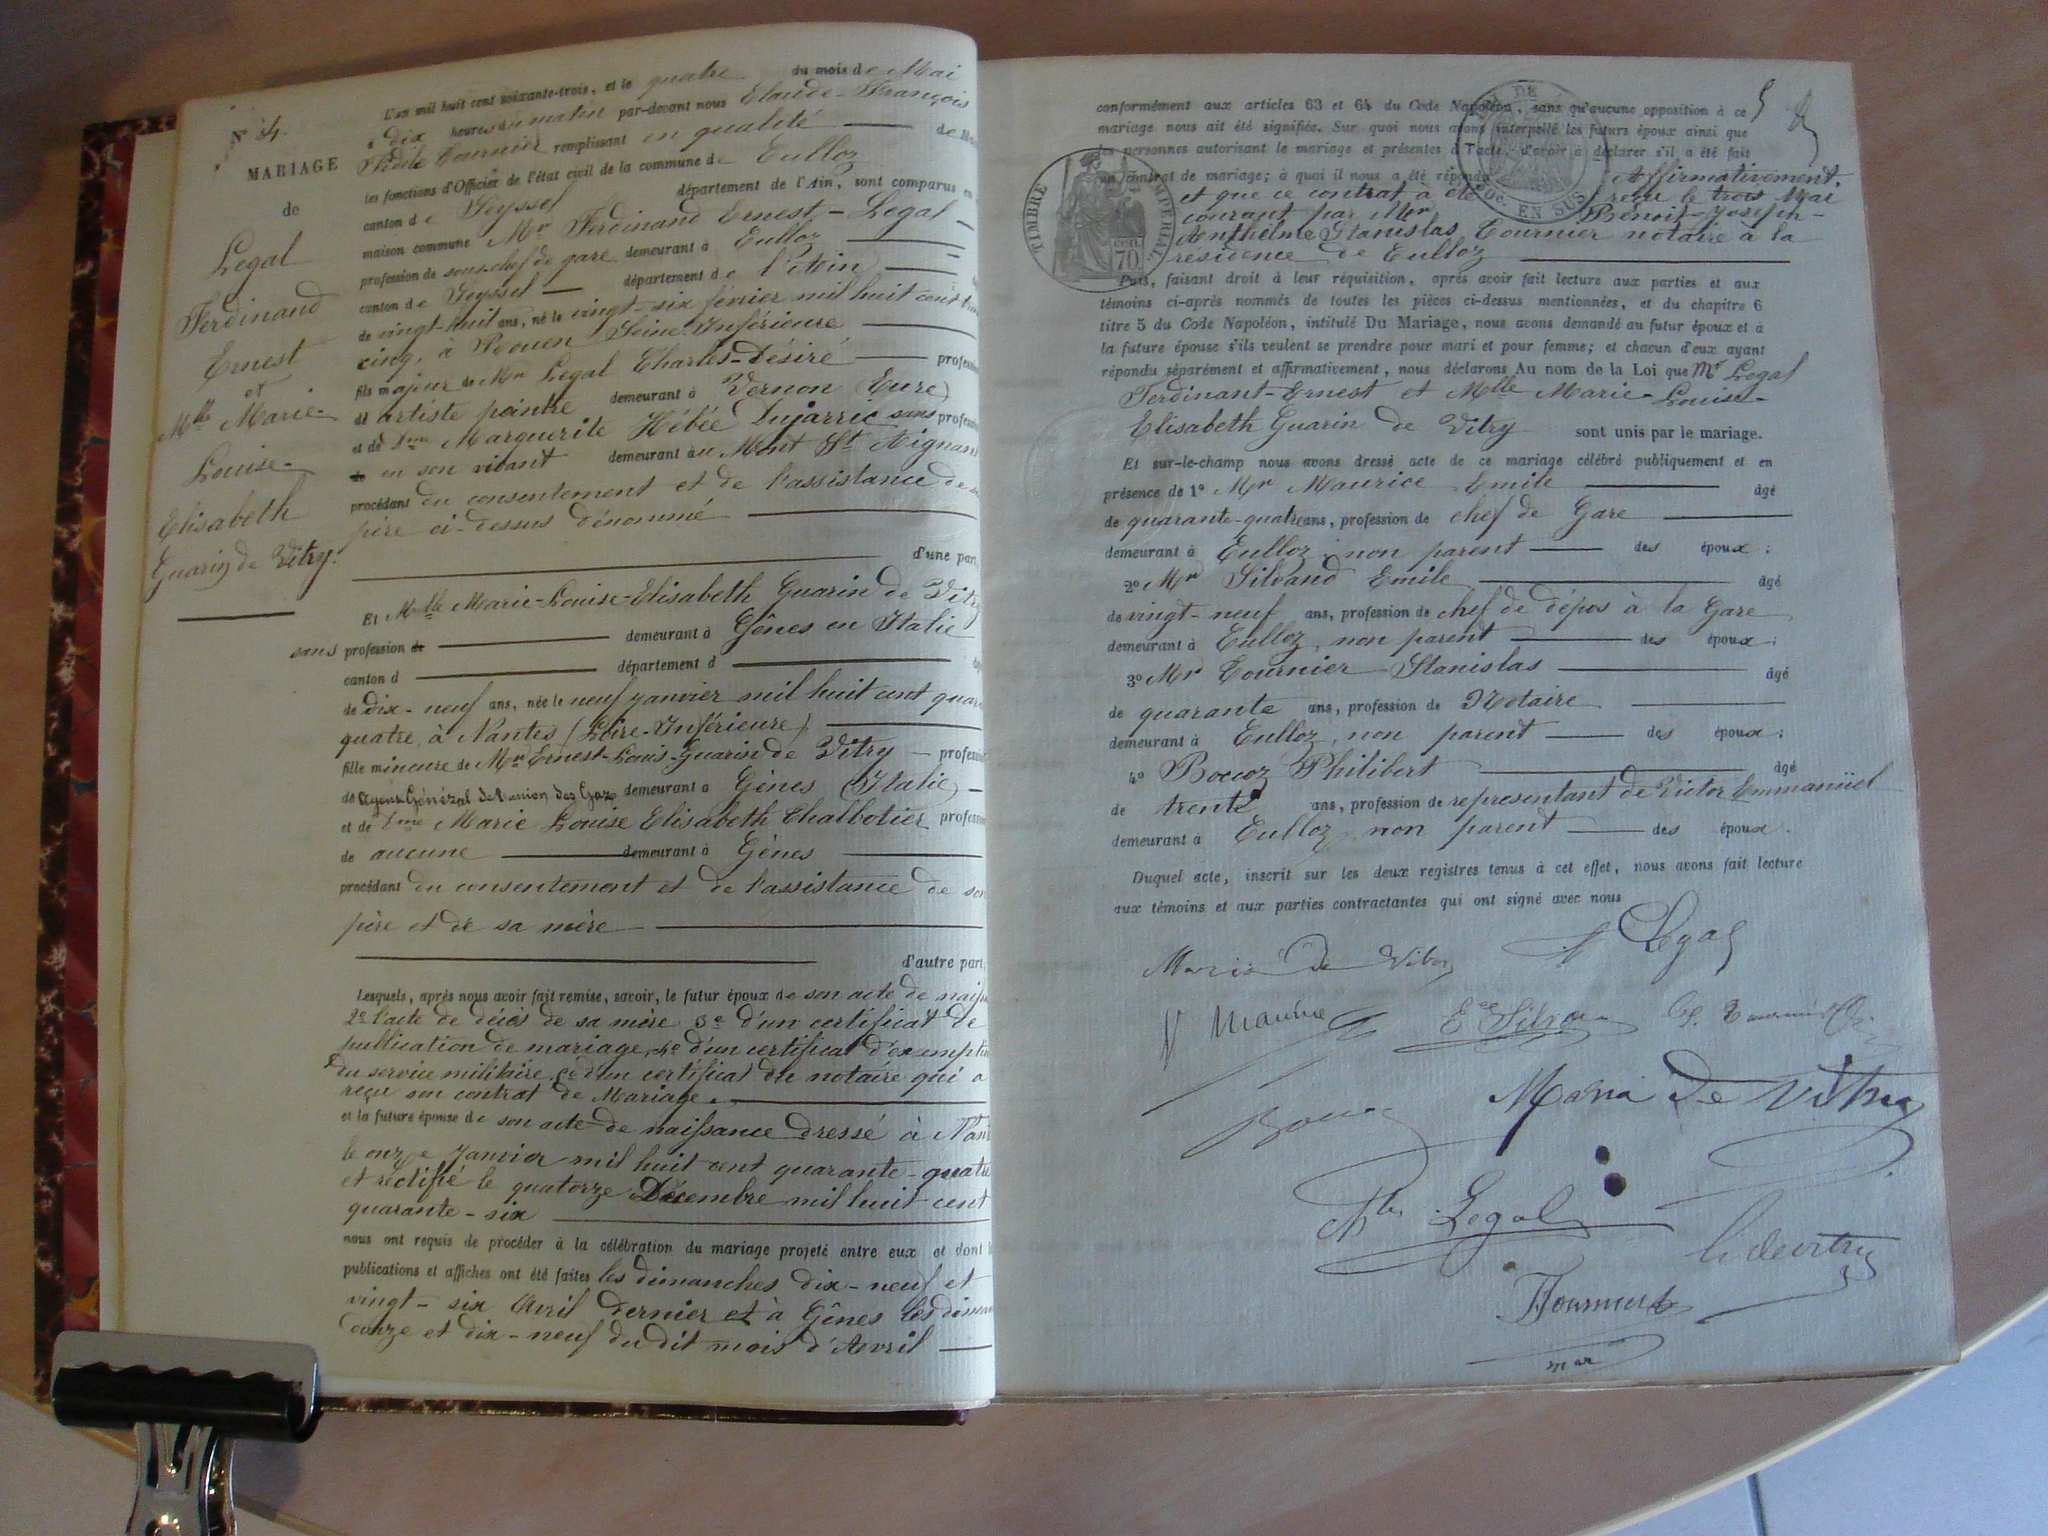 L'an mil huit cent soixante-trois, et le quatre du mois de Mai
à dix heures du matin par-devant nous Claude-François
Fidèle Tournier remplissant en qualité de
les fonctions d'Officier de l'état civil de la commune de Culloz
canton de Seyssel département de l'Ain, sont comparus en
maison commune Mr Ferdinand Ernest Legal
profession de sous-chef de gare demeurant à Culloz
canton de Seyssel département de l'Ain
de vingt-huit ans, né le vingt-six février mil huit cent trente
cinq, à Rouen Seine-Inférieure
fils majeur de Mr Legal Charles-Désiré profession
d'artiste peintre demeurant à Vernon (Eure)
et de Dme Marguerite Hébée Dujarric sans profession
en son vivant demeurant au Mont St Aignan
procédant du consentement et de l'assistance de son
père ci-dessus dénommé
d'une part,
Et Mlle Marie-Louise-Elisabeth Guarin de Vitry
sans profession de demeurant à Gênes en Italie
canton d département d
de dix-neuf ans, née le neuf janvier mil huit cent quarante
quatre, à Nantes (Loire-Inférieure)
fille mineure de Mr Ernest-Louis-Guarin de Vitry profession
de Agent Général de l'union des Gaz demeurant à Gênes (Italie)
et de Dme Marie Louise Elisabeth Chalbotier profession
de aucune demeurant à Gênes
procédant du consentement et de l'assistance de son
père et de sa mère
d'autre part;
Lesquels, après nous avoir fait remise, savoir, le futur époux de son acte de naiss
2o l'acte de décès de sa mère 3o d'un certificat de
publication de mariage, 4o d'un certificat d'exemption
du service militaire 5o d'un certificat du notaire qui a
reçu son contrat de Mariage.
et la future épouse de son acte de naissance dressé à Nantes
le onze Janvier mil huit cent quarante-quatre
et rectifié le quatorze Décembre mil huit cent
quarante-six
nous ont requis de procéder à la célébration du mariage projeté entre eux et dont les
publications et affiches ont été faites les dimanches dix-neuf et
vingt-six Avril dernier et à Gênes les diman
douze et dix-neuf du dit mois d'Avril
No 54
MARIAGE
de
Legal
Ferdinand
Ernest
et
Mlle Marie-
Louise-
Elisabeth
Guarin de Vitry.
conformément aux articles 63 et 64 du Code Napoléon, sans qu'aucune opposition à ce
mariage nous ait été signifiée. Sur quoi nous avons interpellé les futurs époux ainsi que
les personnes autorisant le mariage et présentes à l'acte, d'avoir à déclarer s'il a été fait
un contrat de mariage; à quoi il nous a été répondu Affirmativement,
et que ce contrat a été reçu le trois Mai
courant par Mr Benoit-Joseph-
Anthelme Stanislas Tournier notaire à la
résidence de Culloz
TIMBRE IMPERIAL
CEN. 70
EN SUS
Puis, faisant droit à leur réquisition, après avoir fait lecture aux parties et aux
témoins ci-après nommés de toutes les pièces ci-dessus mentionnées, et du chapitre 6
titre 5 du Code Napoléon, intitulé Du Mariage, nous avons demandé au futur époux et à
la future épouse s'ils veulent se prendre pour mari et pour femme; et chacun d'eux ayant
répondu séparément et affirmativement, nous déclarons Au nom de la Loi que Mr Legal
Ferdinant-Ernest et Mlle Marie-Louise-
Elisabeth Guarin de Vitry sont unis par le mariage.
Et sur-le-champ nous avons dressé acte de ce mariage célébré publiquement et en
présence de 1o Mr Maurice Emile âgé
de quarante-quatre ans, profession de chef de Gare
demeurant à Culloz, non parent des époux;
2o Mr Silvand Emile âgé
de vingt-neuf ans, profession de chef de dépos à la Gare
demeurant à Culloz, non parent des époux;
3o Mr Tournier Stanislas âgé
de quarante ans, profession de Notaire
demeurant à Culloz, non parent des époux;
4o Bocuoz Philibert âgé
de trente ans, profession de représentant de Victor Emmanüel
demeurant à Culloz, non parent des époux.
Duquel acte, inscrit sur les deux registres tenus à cet effet, nous avons fait lecture
aux témoins et aux parties contractantes qui ont signé avec nous
Marie de Vitry Legal
Maurice Silvan
Maria de Vitry
Legal
Tournier
mar